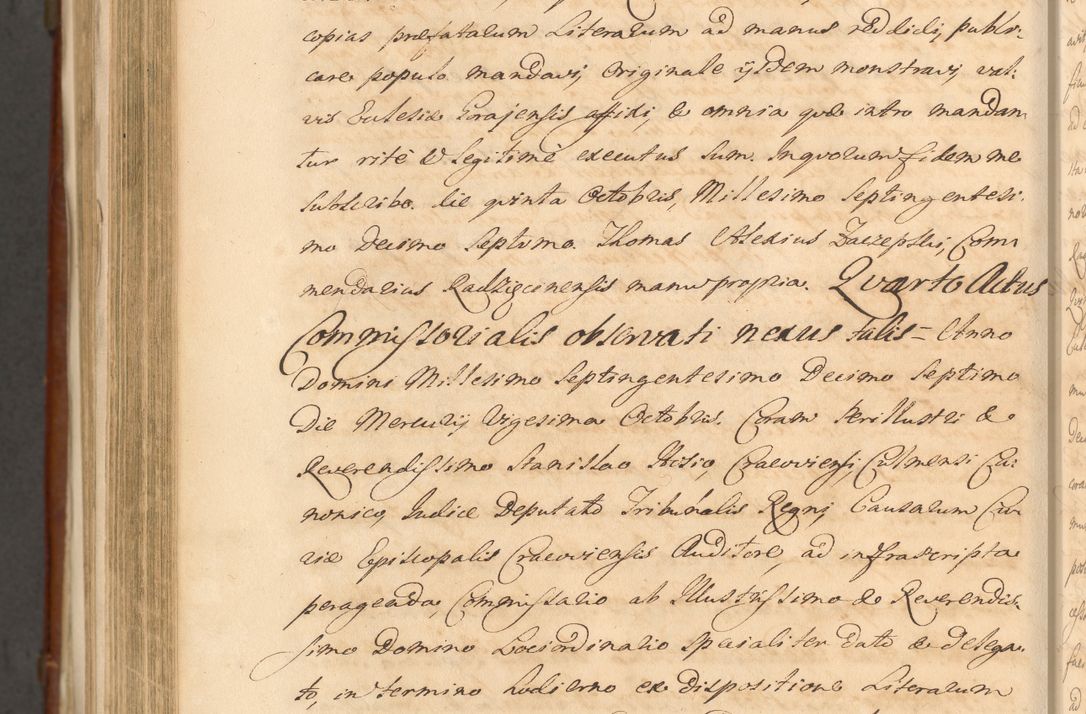 copias præfatarum Literarum ad manus reddidi, publi-
care populo mandavi, originale ijsdem monstravi, val-
vis Eclesiæ Gorajensis affixi, & omnia quæ intro mandan
tur ritè & legitimè executus sum. In quorum fidem me
subscribo. die quinta Octobris, Millesimo Septingentesi-
mo Decimo Septimo. Thomas Alexius Zaczepski, Com
mendarius Radzięcinensis manu propria. Quarto Actus
Commissorialis observati nexus talis – Anno
Domini Millesimo Septingentesimo Decimo Septimo
Die Mercurij Vigesima Octobris. Coram Perillustri &
Reverendissimo Stanislao Hosio, Cracoviensi, Culmensi Ca-
nonico, Iudice Deputato Tribunalis Regni, Causarum Cu
riæ Episcopalis Cracoviensis Auditore, ad infrascripta
peragenda, Commissario ab Illustrissimo & Reverendis-
simo Domino Loci Ordinario specialiter dato & delega-
to, in termino hodierno ex dispositione Literarum